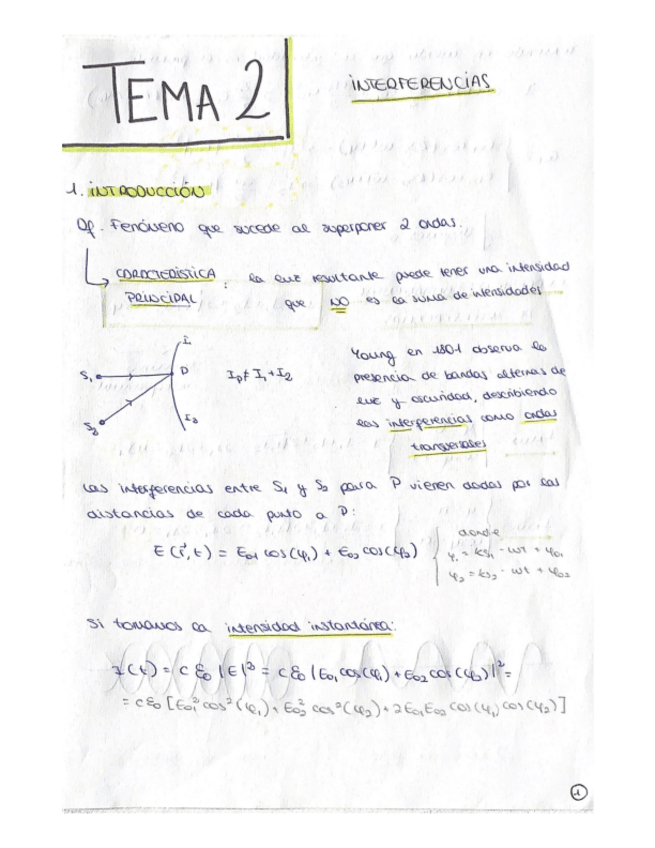 TEMA 2
INTERFERENCIAS
1. INTRODUCCIÓN
Df. Fenómeno que sucede al superponer 2 ondas.
CARACTERÍSTICA PRINCIPAL : la luz resultante puede tener una intensidad
que NO es la suma de intensidades
S₁ P I₁ I₂ S₂
Ip ≠ I₁ + I₂
Young en 1801 observa la
presencia de bandas alternas de
luz y oscuridad, describiendo
las interferencias como ondas
transversales
Las interferencias entre S₁ y S₂ para P vienen dadas por las
distancias de cada punto a P:
E(r⃗,t) = E₀₁ cos(φ₁) + E₀₂ cos(φ₂)
donde
φ₁ = ks₁ - ωt + φ₀₁
φ₂ = ks₂ - ωt + φ₀₂
Si tomamos la intensidad instantánea:
I(t) = cε₀ |E|² = cε₀ |E₀₁ cos(φ₁) + E₀₂ cos(φ₂)|² =
= cε₀ [E₀₁² cos²(φ₁) + E₀₂² cos²(φ₂) + 2E₀₁E₀₂ cos(φ₁) cos(φ₂)]
1